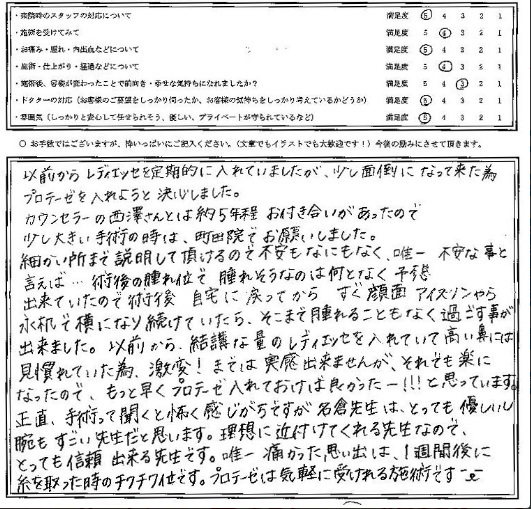 ・来院時のスタッフの対応について 満足度 5 4 3 2 1
・施術を受けてみて 満足度 5 4 3 2 1
・お痛み・腫れ・内出血などについて 満足度 5 4 3 2 1
・施術・仕上がり・経過などについて 満足度 5 4 3 2 1
・施術後、容姿が変わったことで前向き・幸せな気持ちになれましたか? 満足度 5 4 3 2 1
・ドクターの対応(お客様のご要望をしっかり伺ったか、お客様の気持ちをしっかり考えているかどうか) 満足度 5 4 3 2 1
・雰囲気(しっかりと安心して任せられそう、優しい、プライベートが守られているなど) 満足度 5 4 3 2 1
○ お手数ではございますが、枠いっぱいにご記入ください。(文章でもイラストでも大歓迎です!)今後の励みにさせて頂きます。
以前からレディエッセを定期的に入れていましたが、少し面倒になって来た為
プロテーゼを入れようと決心しました。
カウンセラーの西澤さんとは約5年程お付き合いがあったので
少し大きい手術の時は、町田院でお願いしました。
細かい所まで説明して頂けるので不安もなにもなく、唯一不安な事と
言えば…術後の腫れ位で腫れそうなのは何となく予想
出来ていたので術後 自宅に戻ってから すぐ顔面アイスノンやら
氷枕で横になり続けていたら、そこまで腫れることもなく過ごす事が
出来ました。以前から、結構な量のレディエッセを入れていて高い鼻には
見慣れていた為、激変!までは実感出来ませんが、それでも楽に
なったので、もっと早くプロテーゼ入れておけば良かったー!!!と思っています。
正直、手術って聞くと怖く感じがちですが名倉先生は、とっても優しいし
腕もすごい先生だと思います。理想に近付けてくれる先生なので、
とっても信頼出来る先生です。唯一痛かった思い出は、1週間後に
糸を取った時のチクチク位です。プロテーゼは気軽に受けれる施術です